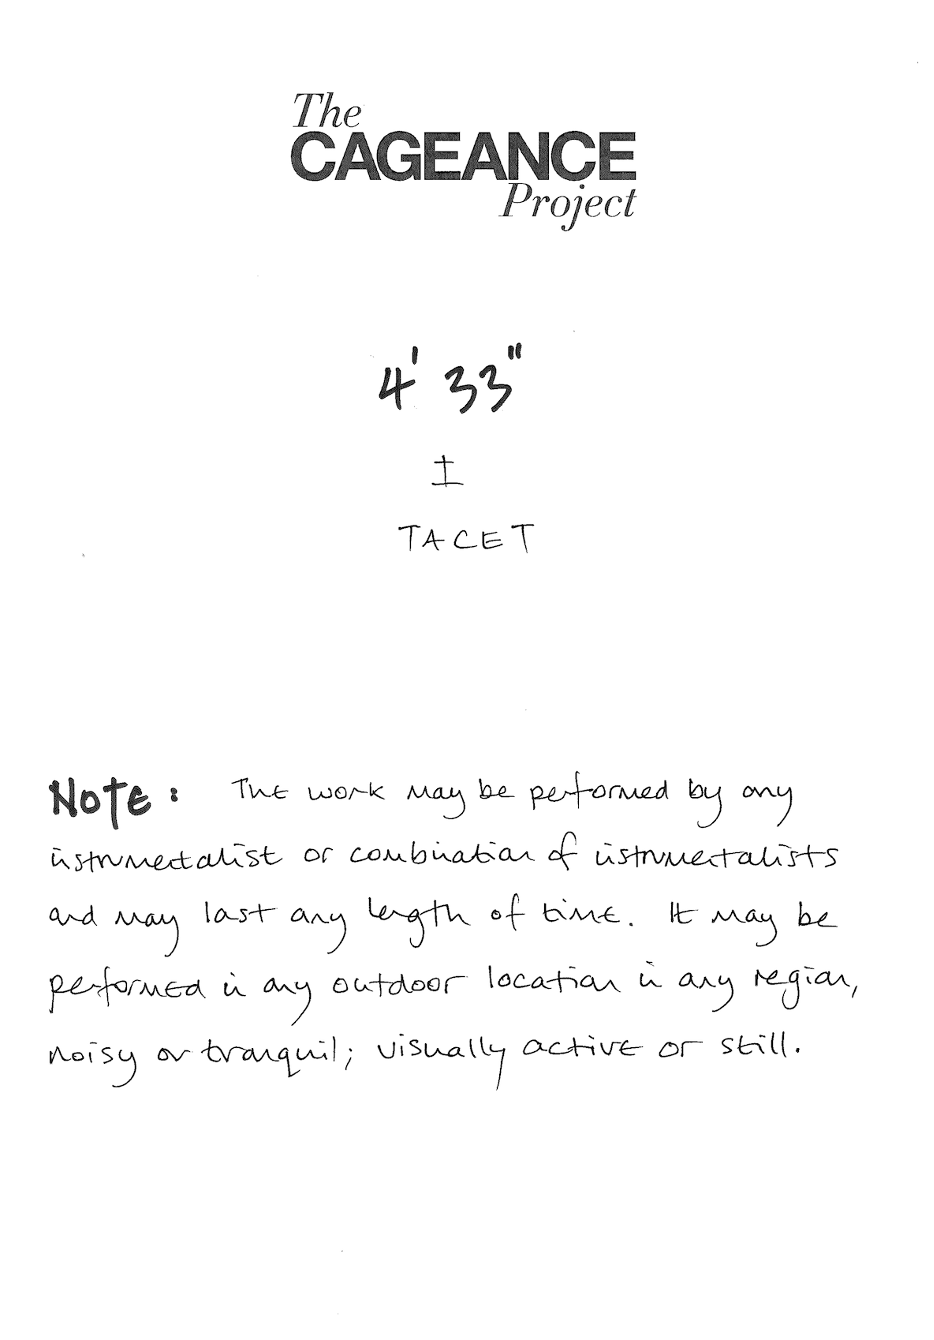 The
CAGEANCE
Project
4' 33"
I
TACET
NOTE: The work may be performed by any
instrumentalist or combination of instrumentalists
and may last any length of time. It may be
performed in any outdoor location in any region,
noisy or tranquil; visually active or still.